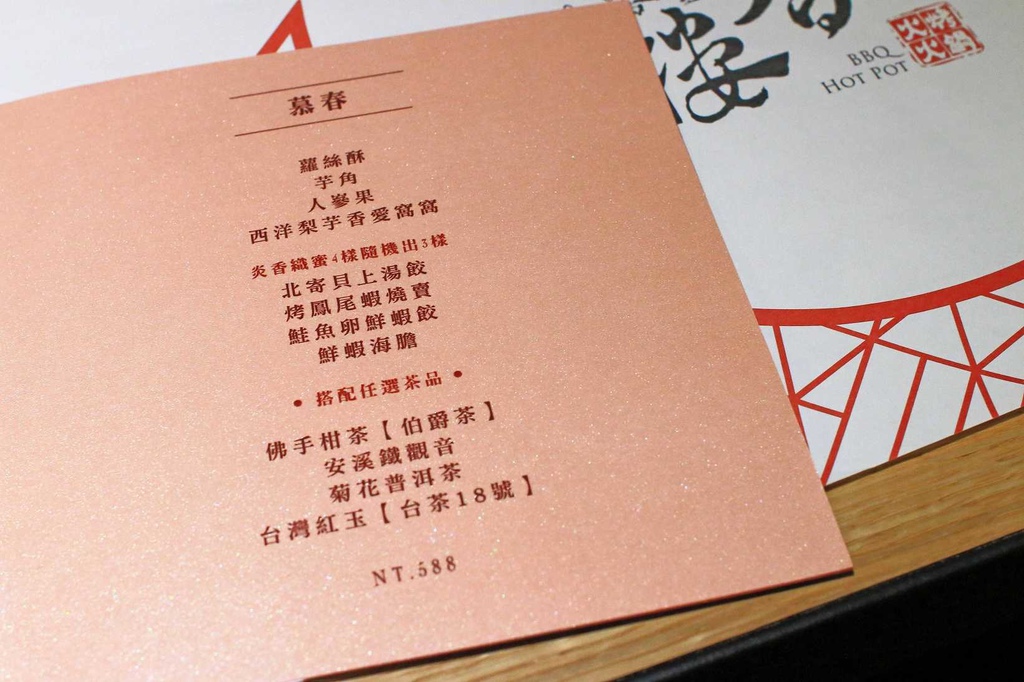 慕春
蘿絲酥
芋角
人參果
西洋梨芋香愛窩窩
炎香織蜜4樣隨機出3樣
北寄貝上湯餃
烤鳳尾蝦燒賣
鮭魚卵鮮蝦餃
鮮蝦海膽
• 搭配任選茶品 •
佛手柑茶【伯爵茶】
安溪鐵觀音
菊花普洱茶
台灣紅玉【台茶18號】
NT.588
香
樓
BBQ
HOT POT